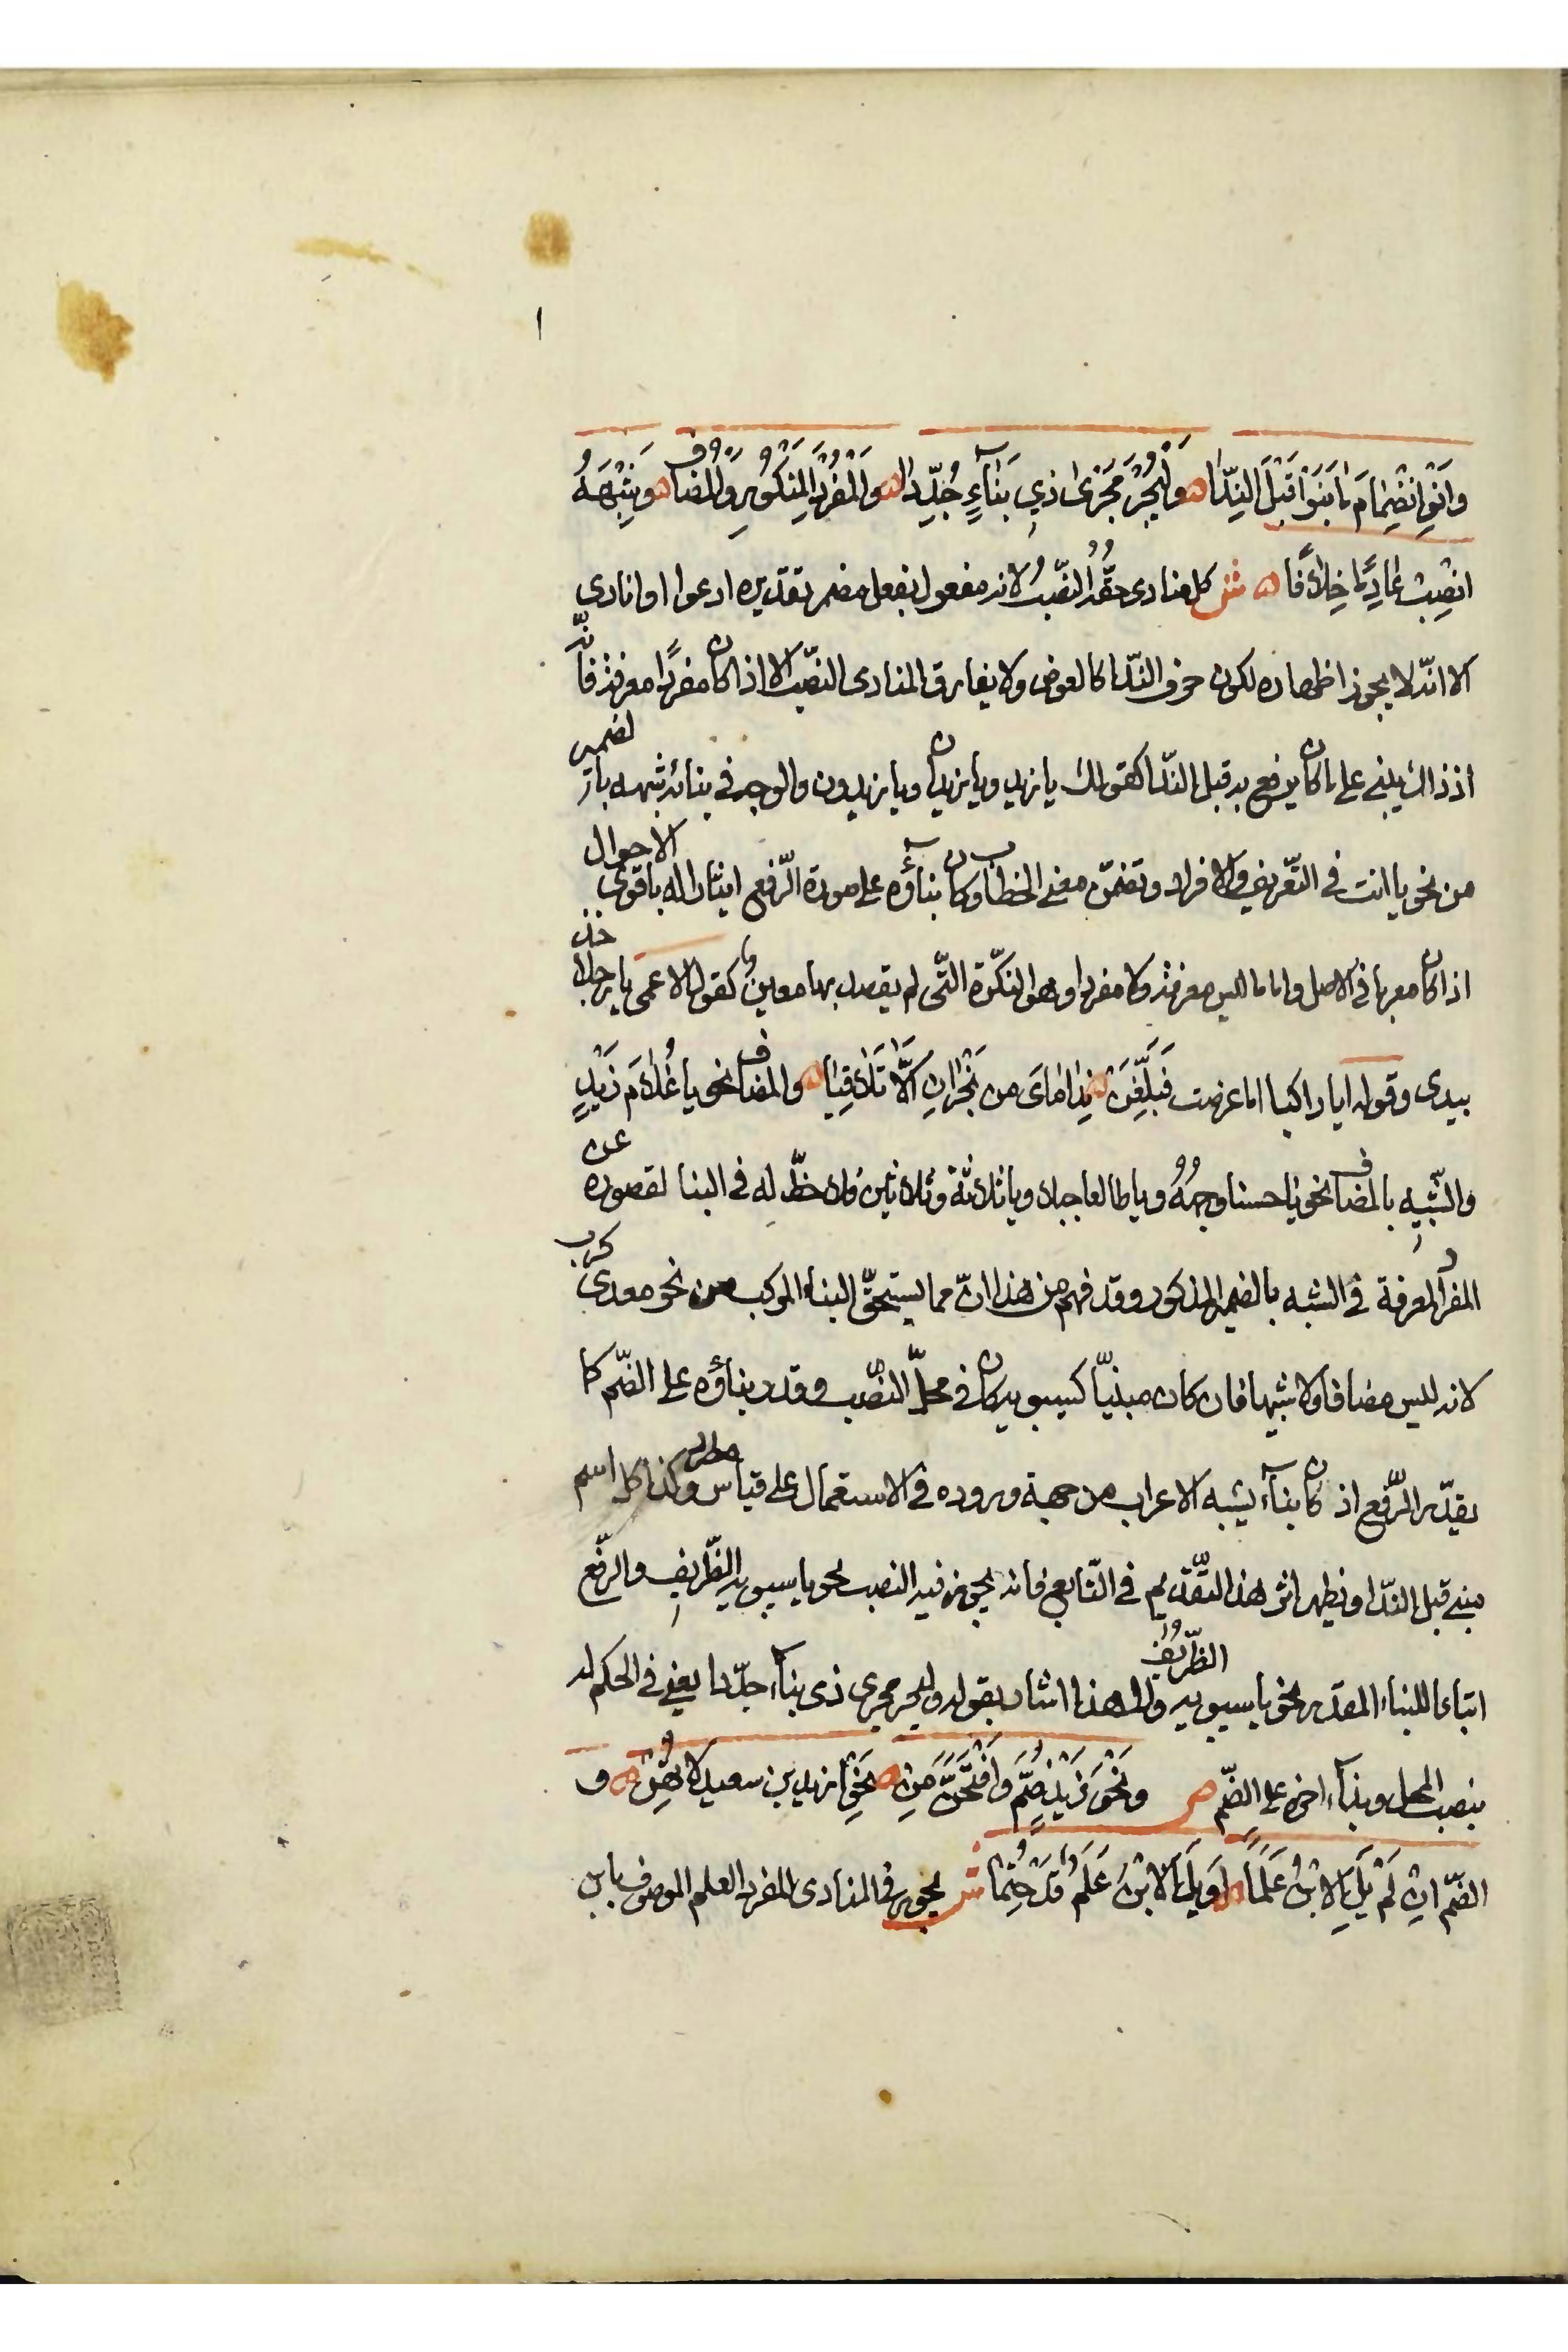 ١
وَانْوِ انْضِمَامَ مَا بَنَوْا قَبْلَ النِّدَا ه وَلْيُجْرَ مُجْرَى ذِي بَنَآءٍ جُدِّدَا ه وَالْمُفْرَدَ الْمَنْكُوْرَ وَالمضافَ ه وَشِبْهَهُ
انْصِبْ عَادِمًا خِلَافًا ه ش كل منادى حقّه النصّبُ لانه مفعول بفعل مضمر تقديره ادعوا او انادى
الا انّه لا يجوز اظهاره لكون حرف النّدا كالعوض ولا يفارق المنادى النصّب الا اذا كان مفردًا معرفة فانّه
اذ ذاك يبنى على ما كان يرفع به قبل النّدا كقولك يا زيد ويا زيدان ويا زيدون والوجه فى بنائه شبهه بالضمير
من نحو يا انت فى التّعريف والافراد وتضمّن معنى الخطاب وكان بنآؤه على صورة الرّفع ايثارا له باقوى الاحوال
اذا كان معربا فى الاصل واما ما ليس معرفة ولا مفردا وهو النكّرة التّى لم يقصد بها معين كقول الاعمى يا رجلا خذ
بيدى وقوله ايا راكبا اما عرضت فَبَلِّغَنْ ه نِدَامَاىَ من نَجْرَانَ اَلَّا تَلَاقِيَا ه والمضاف نحو يا غُلَامَ زَيْدٍ
والشّبيهِ بالمضاف نحو يا حسنا وجهُهُ ويا طالعا جبلا ويا ثلاثة وثلاثين ولا حظّ له فى البنا لقصوره عن
المفرد المعرفة فى الشبه بالضمير المذكور وقد فهم من هذا انّ مما يستحقّ البناء المركب من نحو معدى كرب
لانه ليس مضافا ولا شبيها فان كان مبنيّا كسيبويه كان فى محلّ النصّب وقدر بناؤه على الضّم كما
يقدّر الرّفع اذ كان بنآء يشبه الاعراب من جهة وروده فى الاستعمال على قياس مطرد وكذا كل اسم
مبنى قبل النّدا ويظهر اثر هذا التّقدير فى التّابع فانه يجوز فيه النصب نحو يا سيبويه الظّريفَ والرّفع
اتباعا للبناء المقدر نحو يا سيبويه الظّريفُ والى هذا اشار بقوله وليجر مجرى ذى بنآء جدّدا يعنى فى الحكم له
بنصب المحل وبنآء اخره على الضّم ص ونَحْوَ زَيْدٍ ضُمَّ وَافْتَحَنَّ مَنِ ه نَحْوِ ازيد بن سعيد لا تهِنْ ه و
الضّم ان لَمْ يَلِ الابْنُ عَلَمًا ه اَوْ يَلِ الابْنَ عَلَمٌ قَدْ حُتِمَا ش يجوز فى المنادى المفرد العلم الموصوف بابن